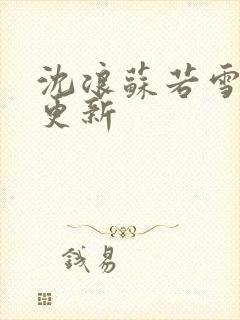 沈浪蘇若雪
更新
錢易